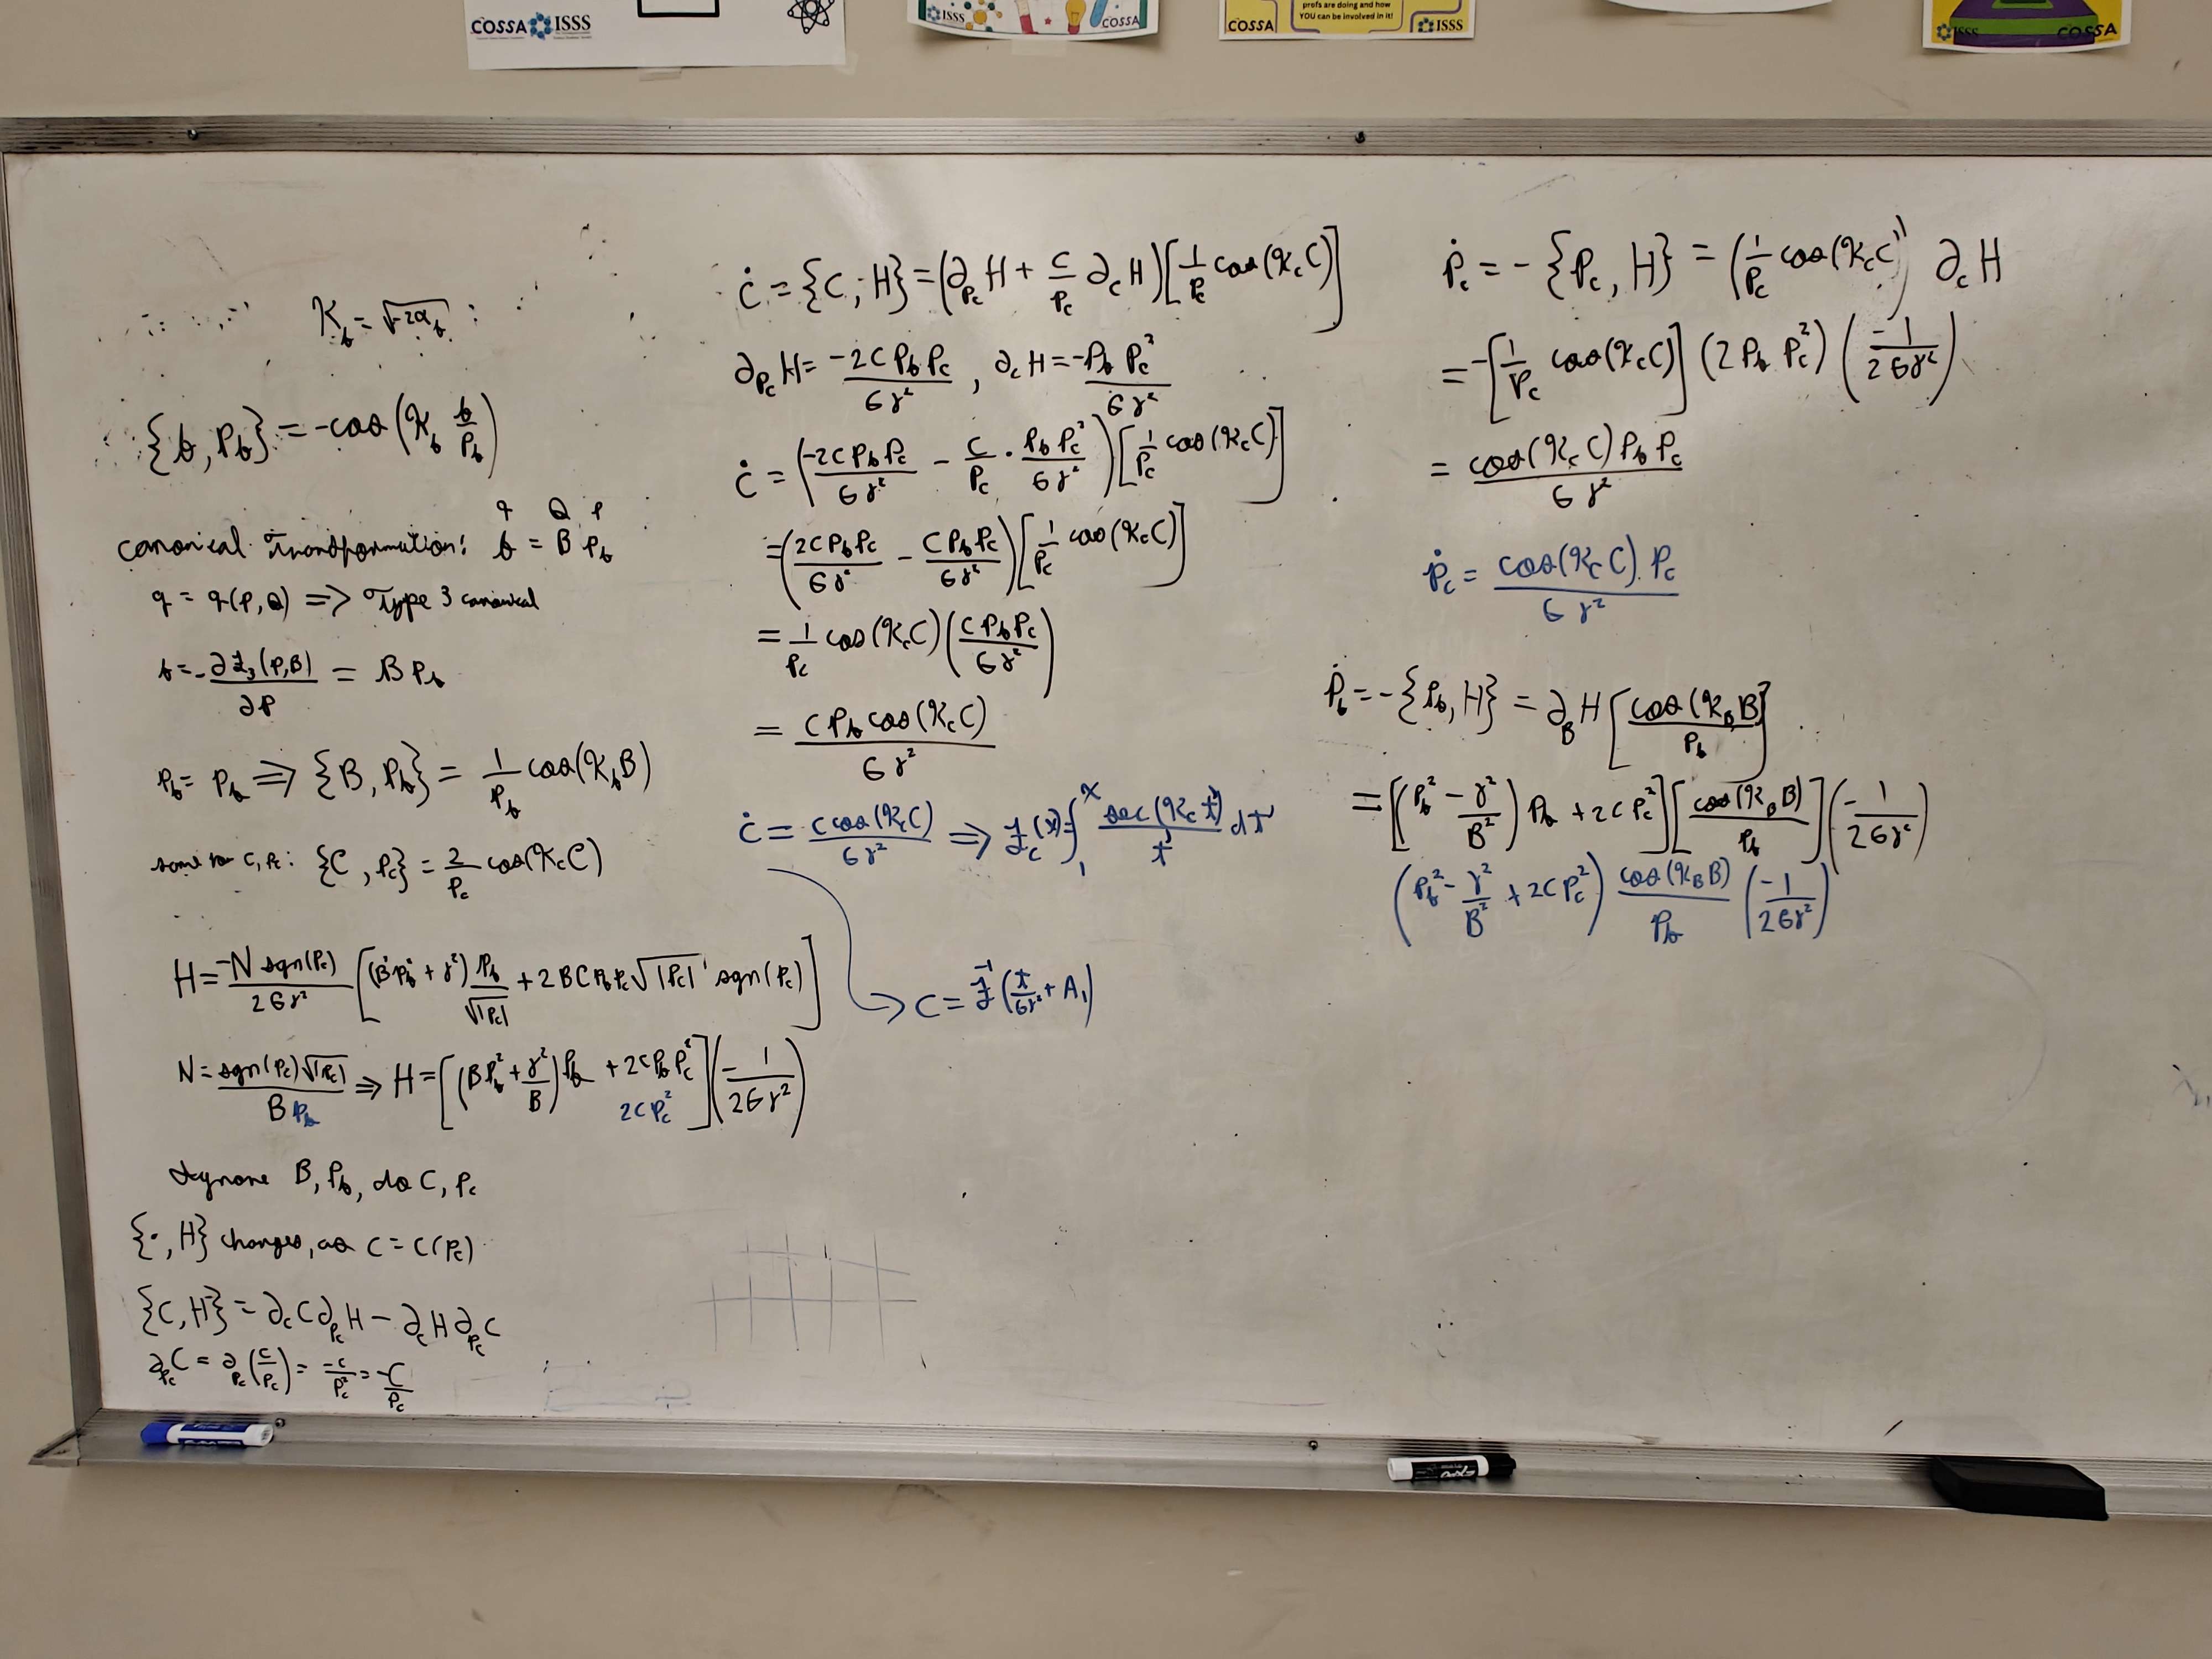 COSSA ISSS
ISSS COSSA
profs are doing and how
YOU can be involved in it!
COSSA ISSS
ISSS COSSA
𝒦_b = √-2α_b :
{b, P_b} = -cos(𝒦_b b/P_b)
q Q p
canonical Transformation: b = B P_b
q = q(P, Q) => Type 3 canonical
b = -∂f_3(P,B)/∂P = B P_b
P_b = P_b => {B, P_b} = 1/P_b cos(𝒦_b B)
same for C, P_c: {C, P_c} = 2/P_c cos(𝒦_c C)
H = -N sgn(P_c)/2Gγ² [(B²P_b² + γ²) P_b/√|P_c| + 2BC P_b P_c √|P_c| sgn(P_c)]
N = sgn(P_c)√|P_c|/B P_b => H = [(BP_b² + γ²/B) P_b + 2C P_b P_c²](-1/2Gγ²)
2CP_c²
Ignore B, P_b, do C, P_c
{·, H} changes, as C = C(P_c)
{C, H} = ∂_c C ∂_{P_c} H - ∂_c H ∂_{P_c} C
∂_{P_c} C = ∂_{P_c}(c/P_c) = -c/P_c² = -C/P_c
Ċ = {C, H} = (∂_{P_c} H + C/P_c ∂_c H)[1/P_c cos(𝒦_c C)]
∂_{P_c} H = -2C P_b P_c/Gγ² , ∂_c H = -P_b P_c²/Gγ²
Ċ = (-2C P_b P_c/Gγ² - C/P_c · P_b P_c²/Gγ²)[1/P_c cos(𝒦_c C)]
= (2C P_b P_c/Gγ² - C P_b P_c/Gγ²)[1/P_c cos(𝒦_c C)]
= 1/P_c cos(𝒦_c C)(C P_b P_c/Gγ²)
= C P_b cos(𝒦_c C)/Gγ²
Ċ = C cos(𝒦_c C)/Gγ² => f_c(x) = ∫_1^x sec(𝒦_c t)/t dt
C = f^-1(t/Gγ² + A_1)
Ṗ_c = -{P_c, H} = (1/P_c cos(𝒦_c C)) ∂_c H
= -[1/P_c cos(𝒦_c C)](2 P_b P_c²)(-1/2Gγ²)
= cos(𝒦_c C) P_b P_c/Gγ²
Ṗ_c = cos(𝒦_c C) P_c/Gγ²
Ṗ_b = -{P_b, H} = ∂_B H [cos(𝒦_B B)/P_b]
= [(P_b² - γ²/B²) P_b + 2C P_c²][cos(𝒦_B B)/P_b](-1/2Gγ²)
(P_b² - γ²/B² + 2C P_c²) cos(𝒦_B B)/P_b (-1/2Gγ²)